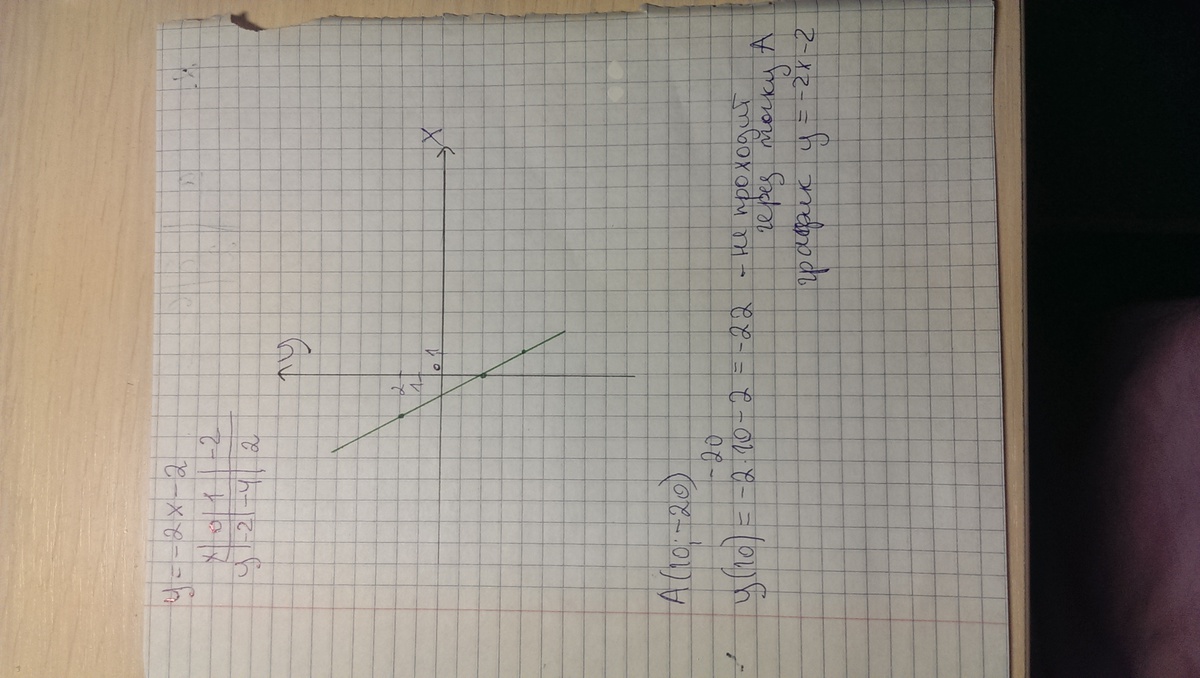 y = -2x - 2
x | 0 | 1 | -2
y | -2 | -4 | 2
y
x
2
1
0 1
A(10; -20)
-20
y(10) = -2·10 - 2 = -22 - не проходит
через точку A
график y = -2x - 2